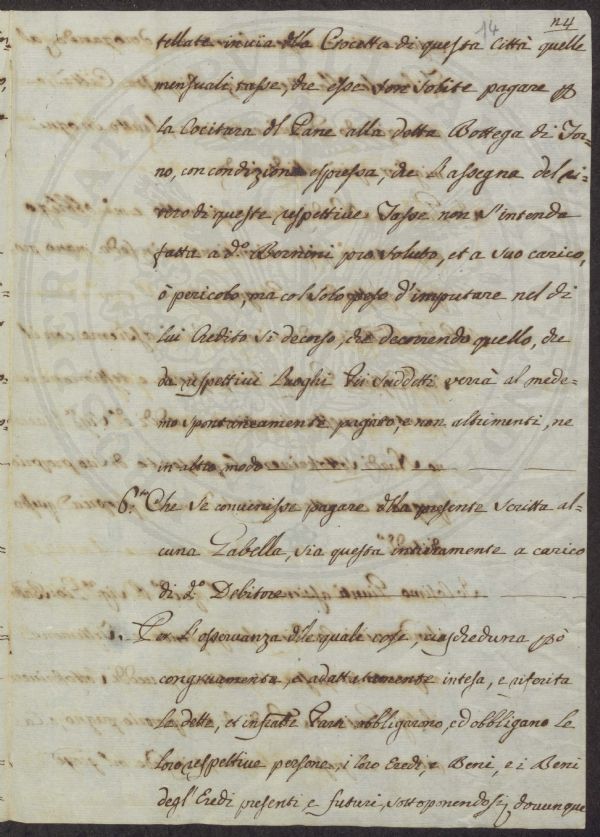 14 n4
tellate in uia della Crocetta di questa Città quelle
mensuali tasse, che esse son solite pagare p
la Cocitura dl Pane alla detta Bottega di For-
no, con condizione espressa, che l'assegna del ri-
tiro di queste respettiue Tasse non s'intenda
fatta a d.o Bornini pro soluto, et a suo carico,
ò pericolo, ma col solo peso d'imputare nel di
lui Credito sì decorso, che decorrendo quello, che
da respettiui Luoghi Pii suddetti verrà al mede-
mo spontaneamente pagato, e non altrimenti, ne
in altro modo
6.to Che se conuenisse pagare dlla presente scritta al-
cuna Gabella, sia questa intieramente a carico
di d.o Debitore
Per l'osseruanza dlle quali cose, ciascheduna però
congruamente, e adattatamente intesa, e riferita
le dette, et infratte Parti obbligarono, ed obbligano le
loro respettiue persone, i loro Eredi, e Beni, e i Beni
degl'Eredi presenti e futuri, sottoponendosi douunque